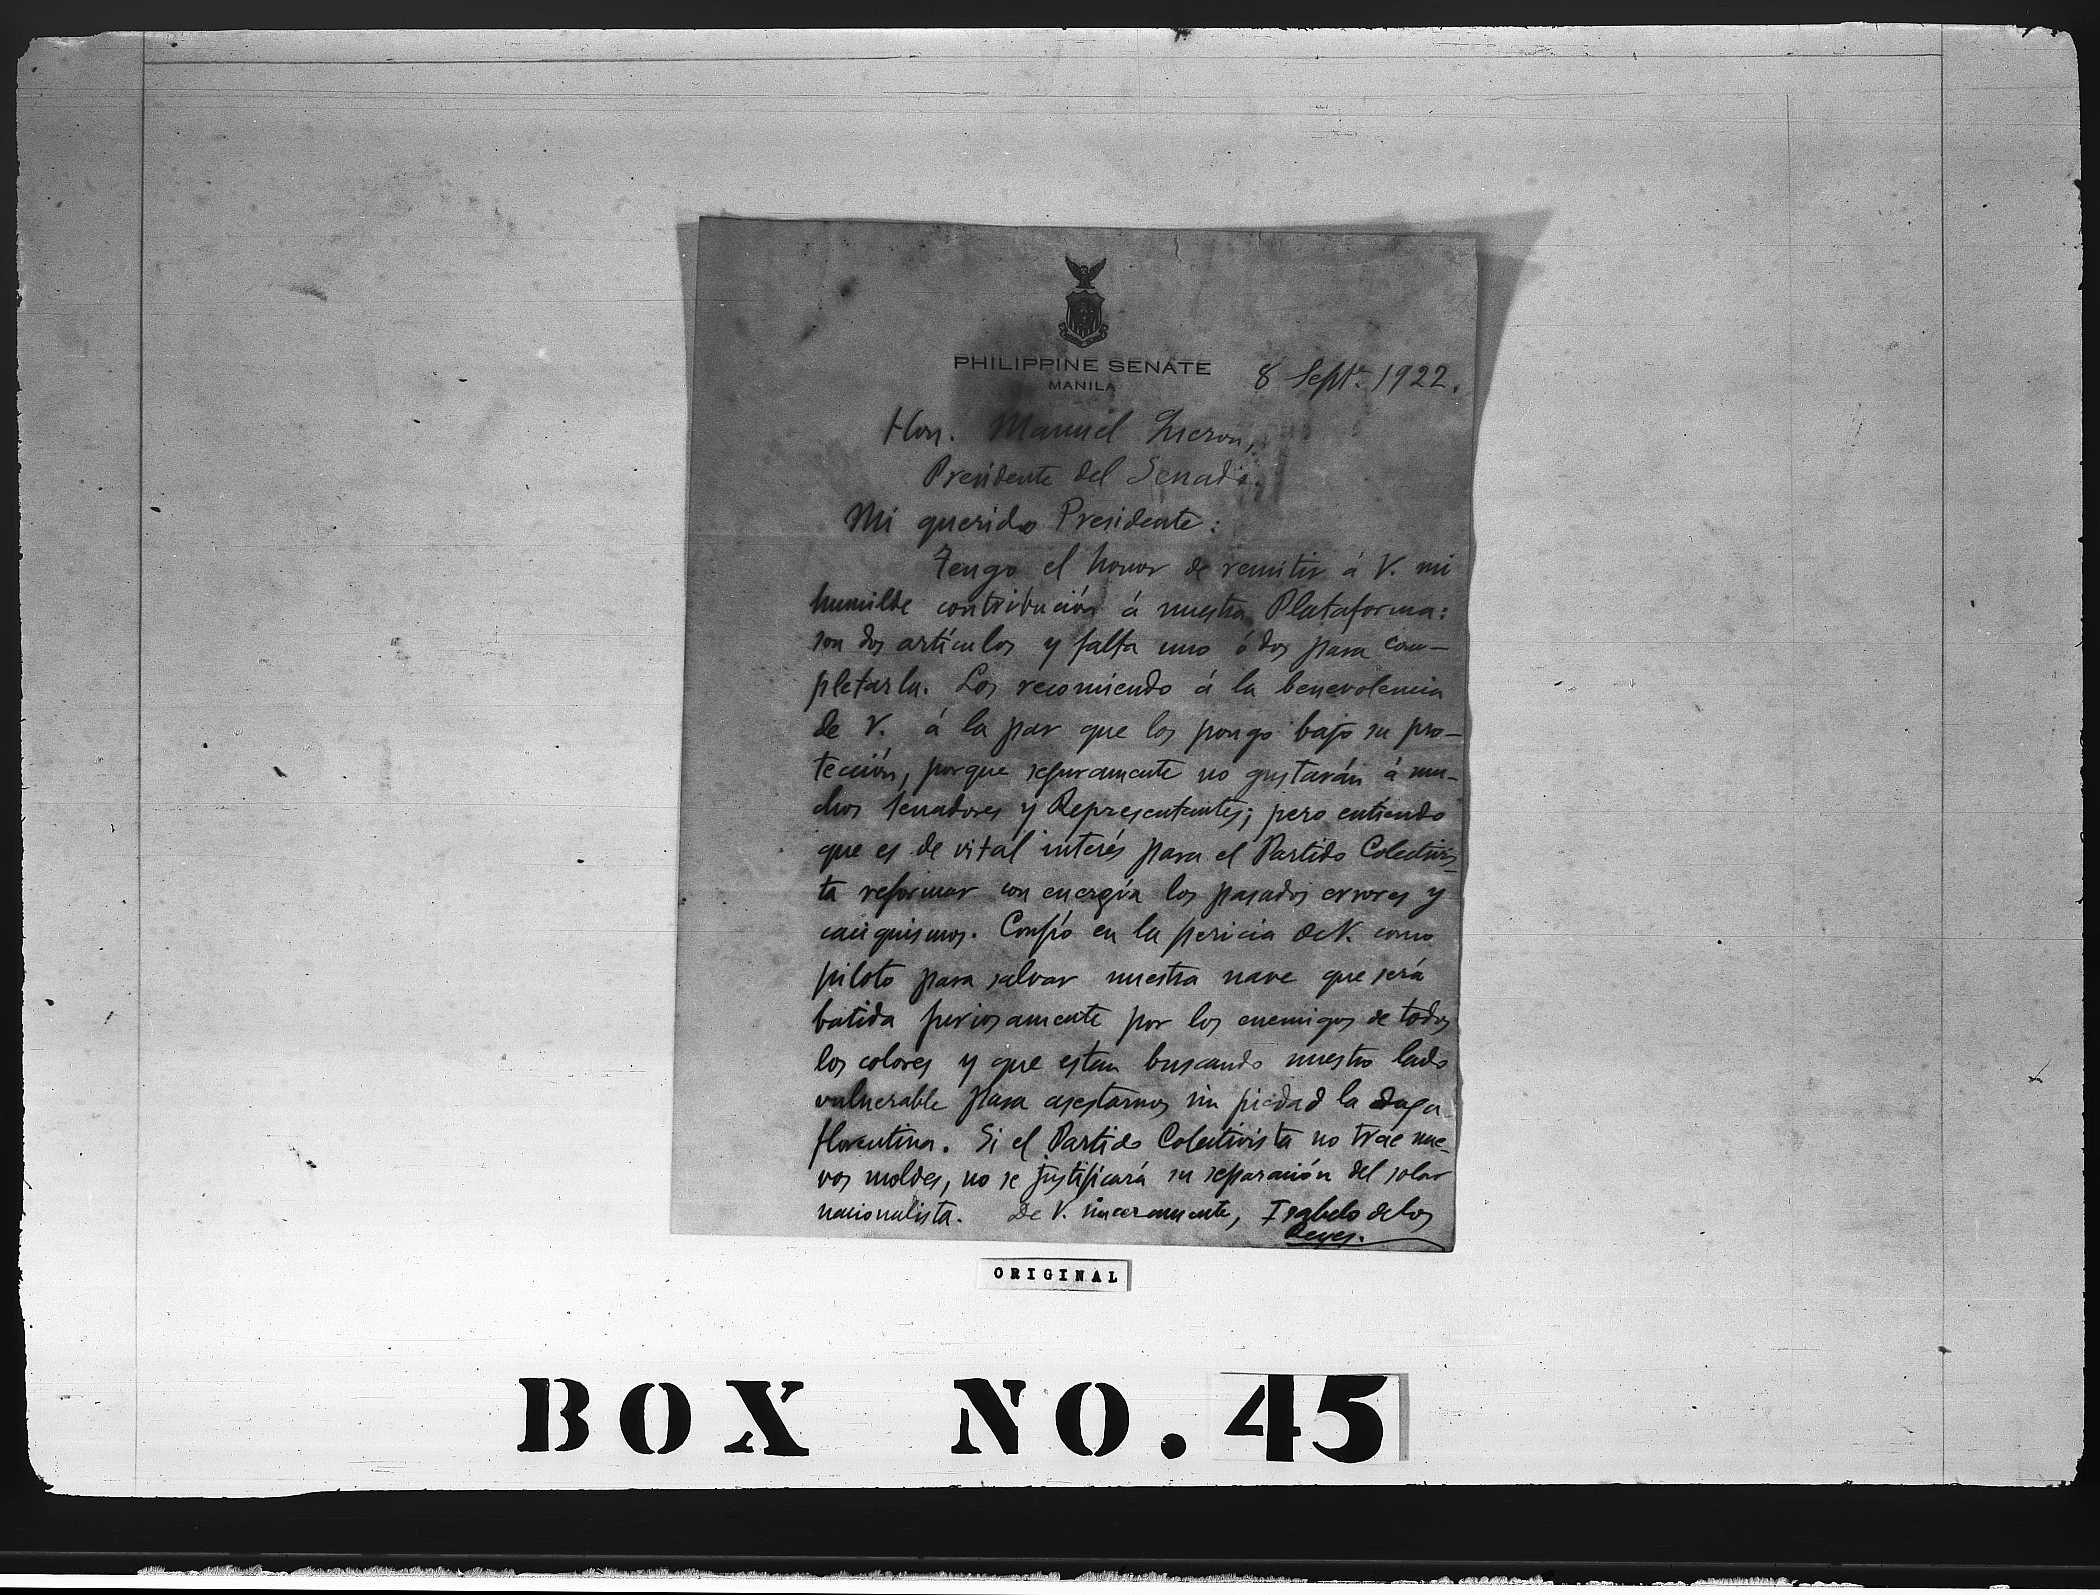 PHILIPPINE SENATE
MANILA
8 Septe. 1922.
Hon. Manuel Quezon,
Presidente del Senado.
Mi querido Presidente:
Tengo el honor de remitir á V. mi
humilde contribución á nuestra Plataforma:
son dos artículos y falta uno ó dos para com-
pletarla. Los recomiendo á la benevolencia
de V. á la par que los pongo bajo su pro-
tección, porque seguramente no gustarán á mu-
chos Senadores y Representantes; pero entiendo
que es de vital interés para el Partido Colectivis-
ta reformar con energía los pasados errores y
caciquismos. Confío en la pericia de V. como
piloto para salvar nuestra nave que será
batida furiosamente por los enemigos de todos
los colores y que estan buscando nuestro lado
vulnerable para asestarnos sin piedad la daga
florentina. Si el Partido Colectivista no trae nue-
vos moldes, no se justificará su separación del solar
nacionalista. De V. sinceramente, Isabelo de los
Reyes.
ORIGINAL
BOX NO. 45